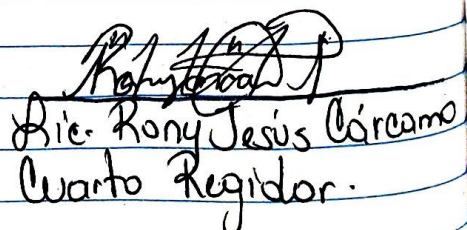 Lic. Rony Jesús Cárcamo
Cuarto Regidor.